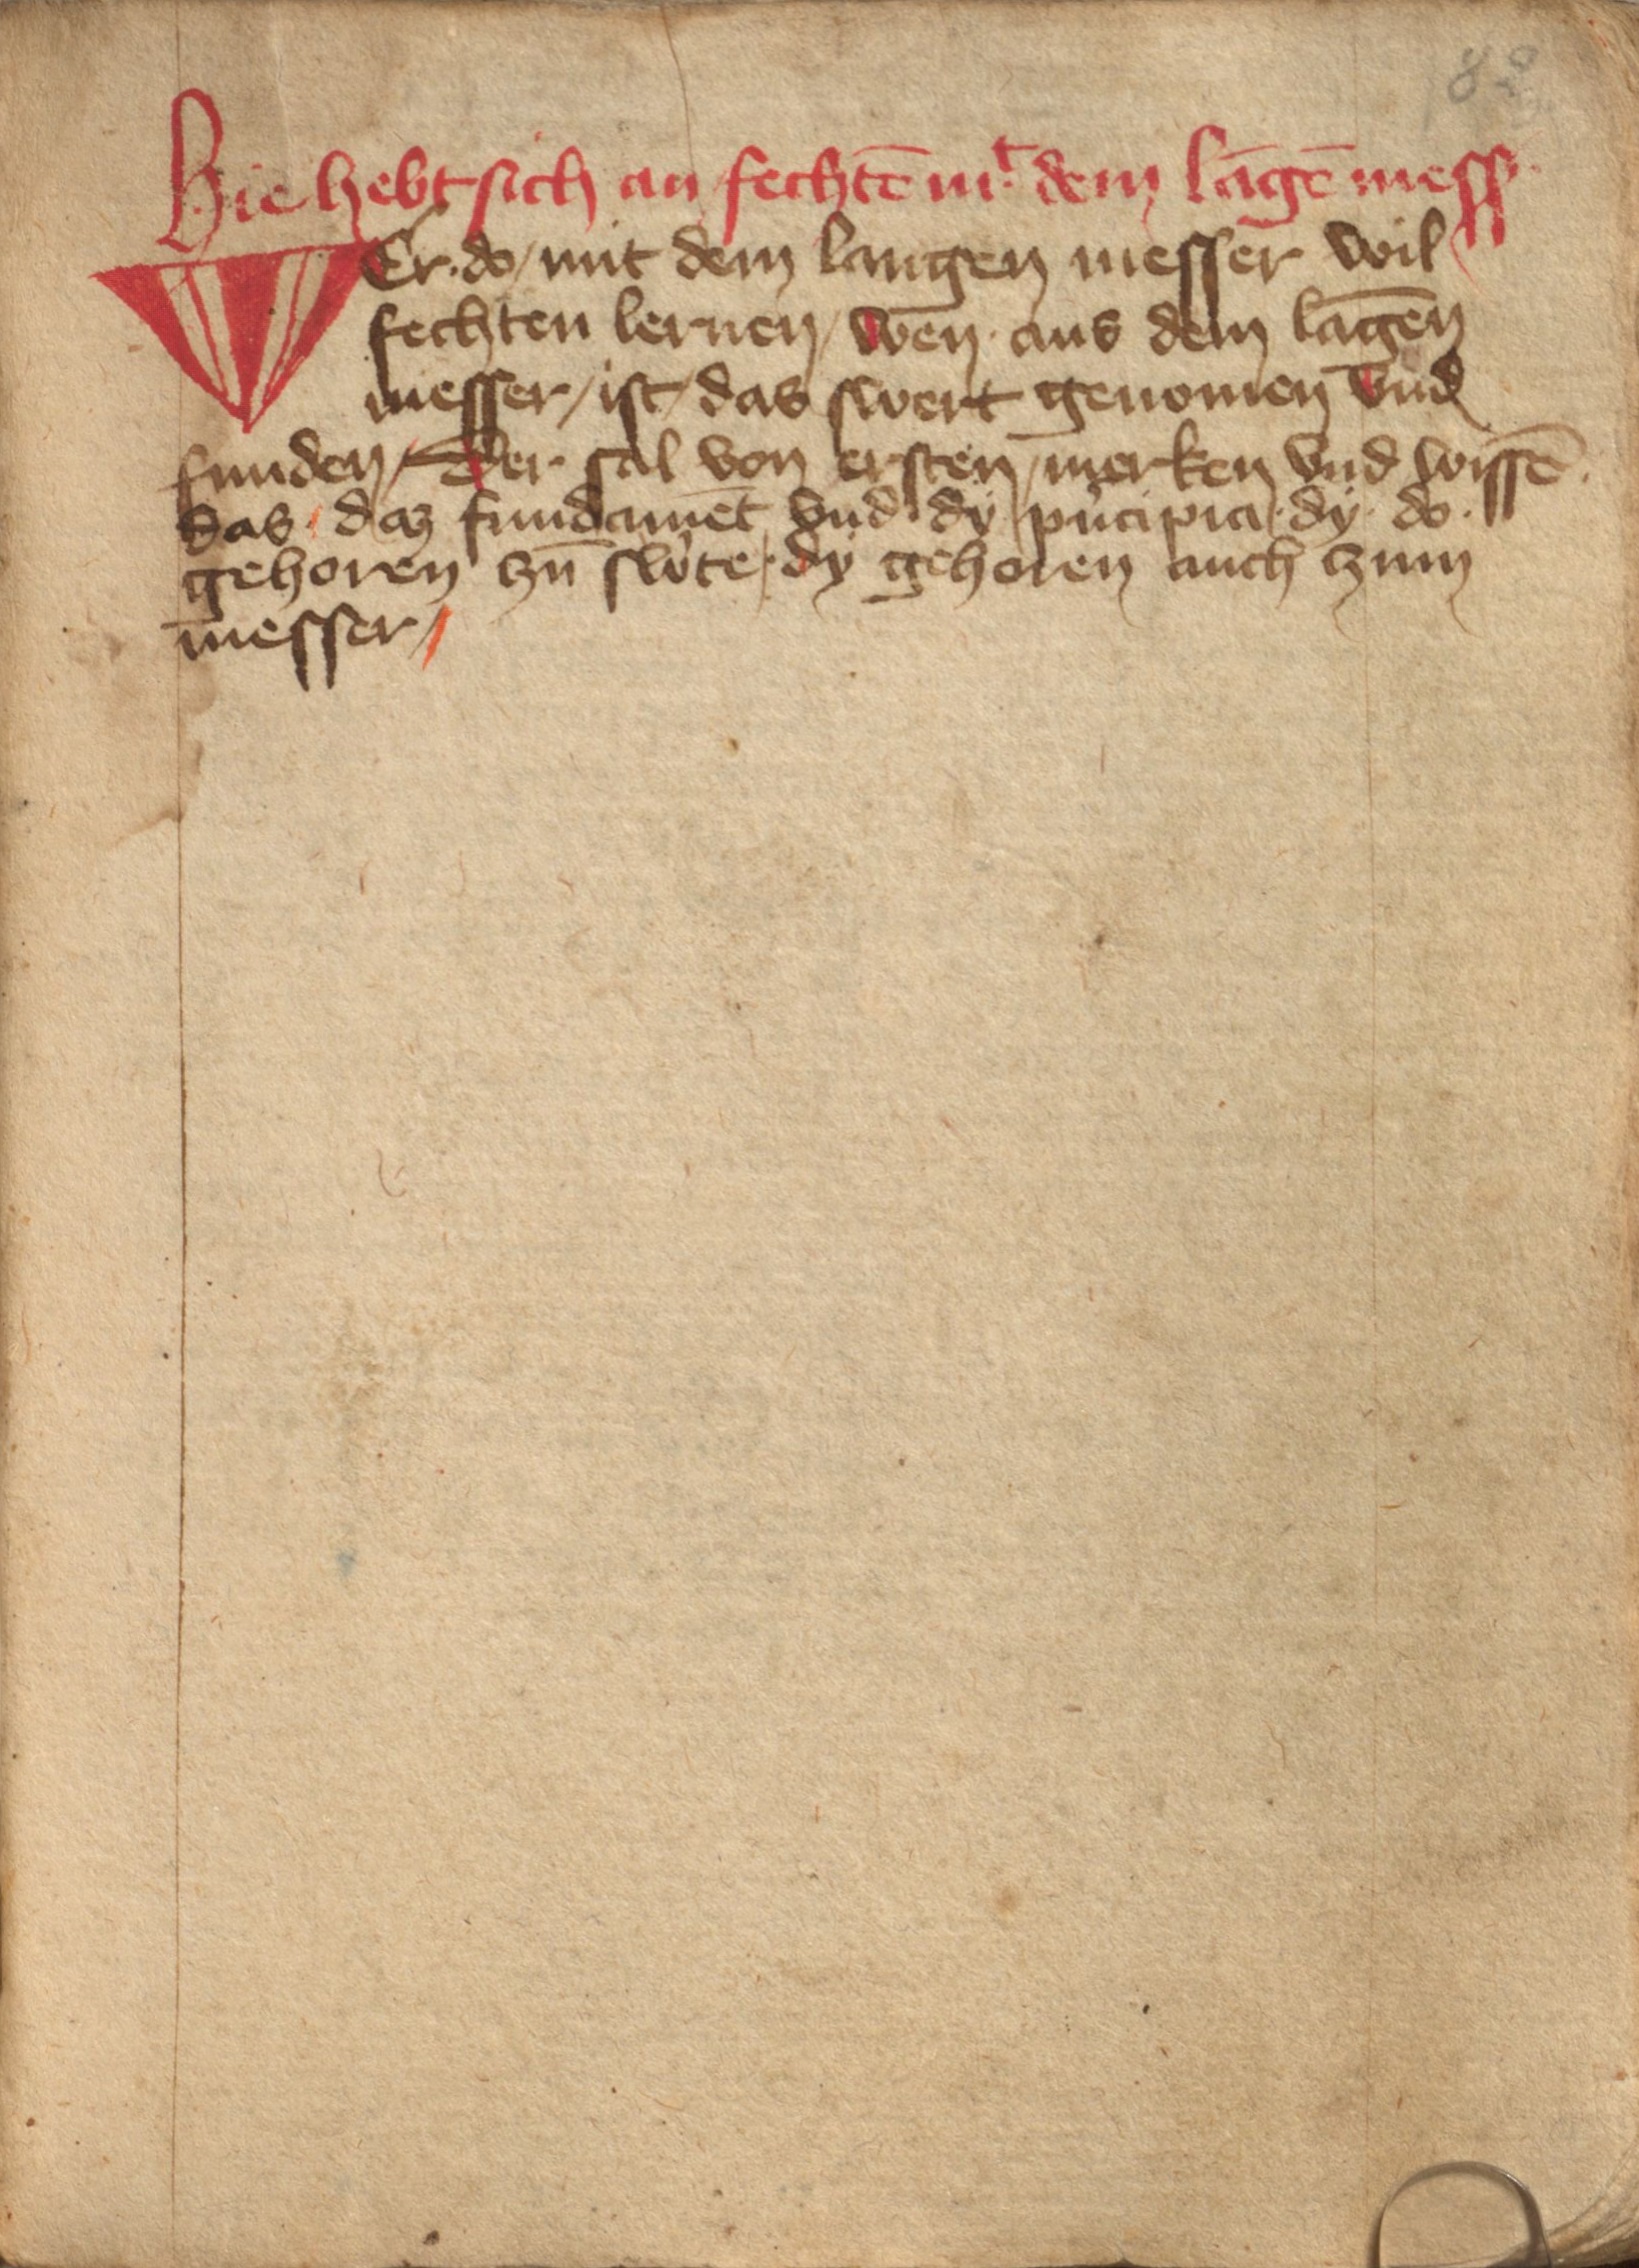 82
Hie hebt sich an fechtē mᵗ dem lāgē mess
WEr·do/mit dem langen messer wil
fechten lernen/wen̄·aus dem lāgen̄
messer/ist/das swert genomen vnd
funden/Der sal von ersten/merken vnd wissē·
das/daz fundamēt vnd·dÿ prīcipia·dÿ·do·
gehoren zū swˀte·dÿ gehoren auch zum
messer/